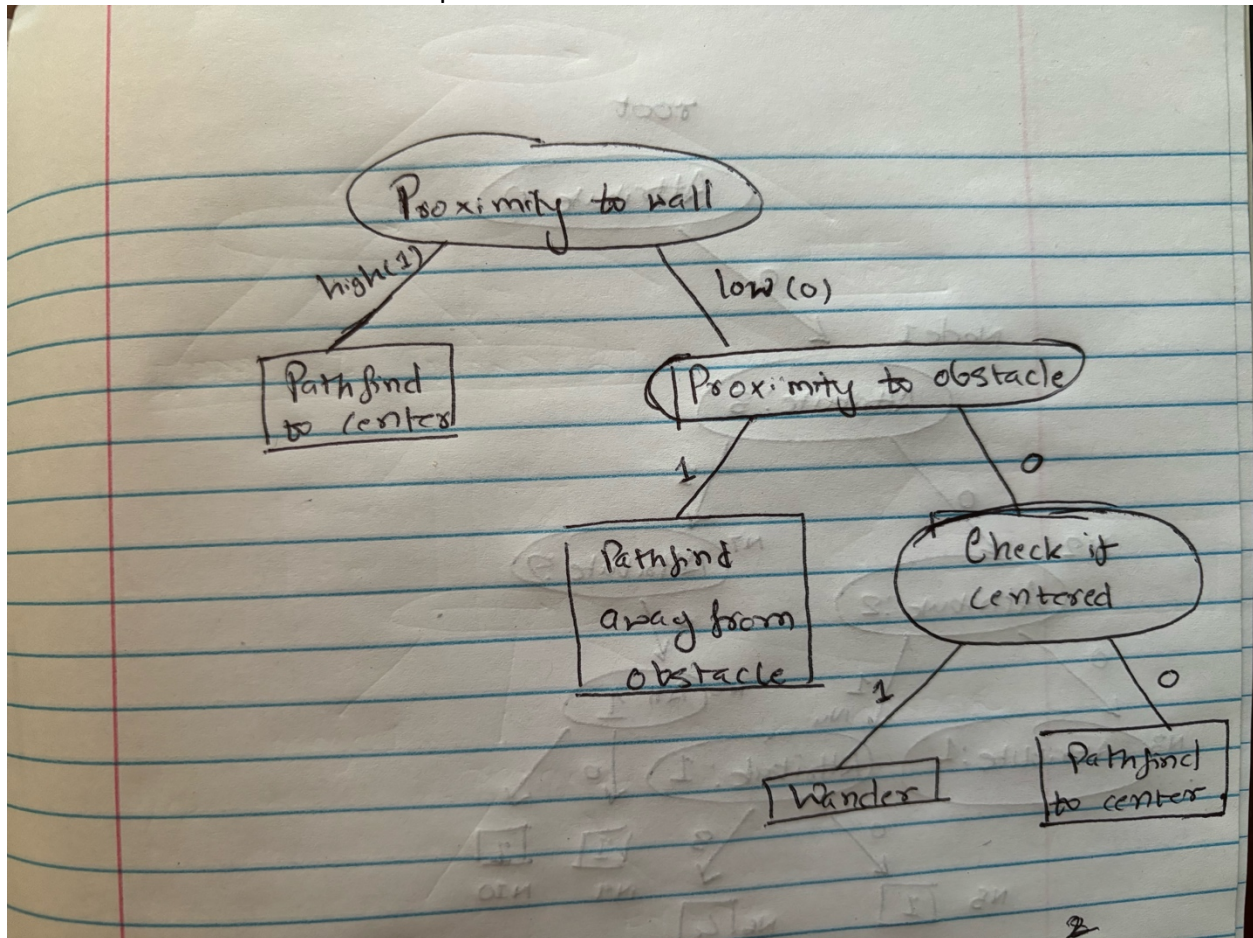 Proximity to wall
high(1)
low (0)
Pathfind
to center
Proximity to obstacle
1
0
Pathfind
away from
obstacle
Check if
centered
1
0
Wander
Pathfind
to center
2